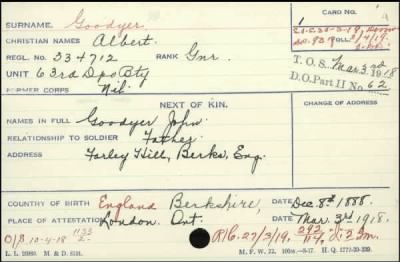 CARD NO.
SURNAME. Goodyer.
CHRISTIAN NAMES Albert.
REGL. NO. 334712 RANK Gnr.
UNIT 63rd Dpo Bty
FORMER CORPS Nil.
T.O.S. Mar 3rd 1918
D.O. Part II No. 62
NEXT OF KIN.
CHANGE OF ADDRESS
NAMES IN FULL Goodyer John.
RELATIONSHIP TO SOLDIER Father.
ADDRESS Farley Hill, Berks, Eng.
COUNTRY OF BIRTH England Berkshire, DATE Dec. 8th 1888.
PLACE OF ATTESTATION London. Ont. DATE Mar. 3rd 1918.
O/S 10-4-18 R/C. 27/3/19.
L. L. 20980. M. & D. 8131. M. F. W. 22.